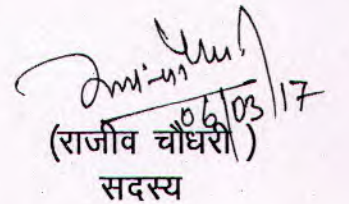 06/03/17
(राजीव चौधरी)
सदस्य